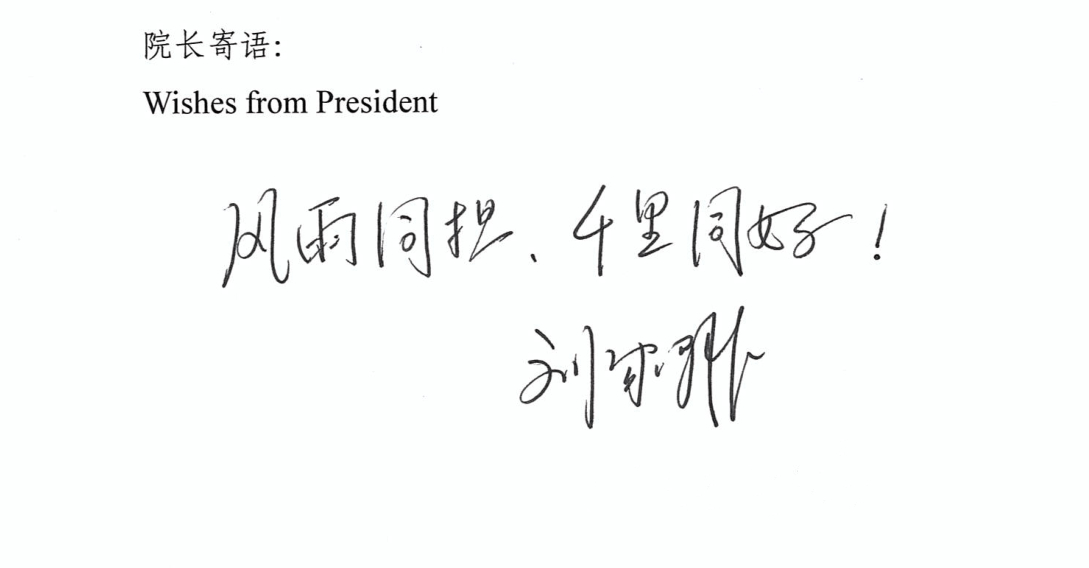 院长寄语:
Wishes from President
风雨同担、千里同好!
刘